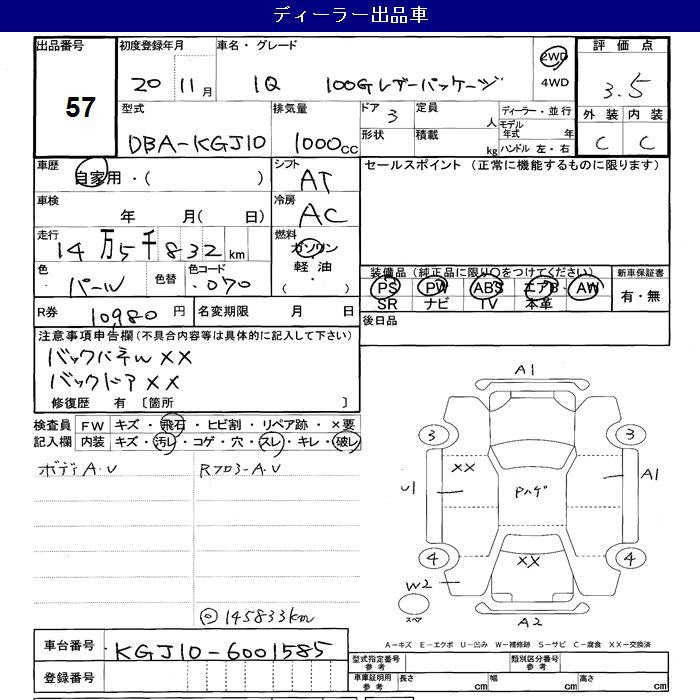 ディーラー出品車
出品番号 初度登録年月 車名・グレード 2WD 評価点
57 20 11月 IQ 100Gレザーパッケージ 4WD 3.5
型式 排気量 ドア 3 定員 人 ディーラー・並行 外装 内装
DBA-KGJ10 1000cc 形状 積載 kg モデル年式 年 C C
ハンドル 左・右
車歴 自家用・( ) シフト AT セールスポイント (正常に機能するものに限ります)
車検 年 月( 日) 冷房 AC
走行 14万5千832km 燃料 ガソリン
軽油・
( )
色 パール 色替 色コード 070 装備品(純正品に限り○をつけてください) 新車保証書
PS PW ABS エアB AW 有・無
SR ナビ TV 本革
R券 10980円 名変期限 月 日 後日品
注意事項申告欄(不具合内容等は具体的に記入して下さい)
バックパネルXX
バックドアXX
修復歴 有 〔箇所 〕
検査員 FW キズ・飛石・ヒビ割・リペア跡・×要
記入欄 内装 キズ・汚レ・コゲ・穴・スレ・キレ・破レ
ボデーA.U RフロアA.U
A1
3 3
XX A1
U1 Pハゲ
4 4
XX
W2
スペア
A2
◎145833km
A-キズ E-エクボ U-凹み W-補修跡 S-サビ C-腐食 XX-交換済
車台番号 KGJ10-6001585
型式指定番号 参考 類別区分番号 参考
登録番号
車庫証明用 参考 長さ cm 幅 cm 高さ cm